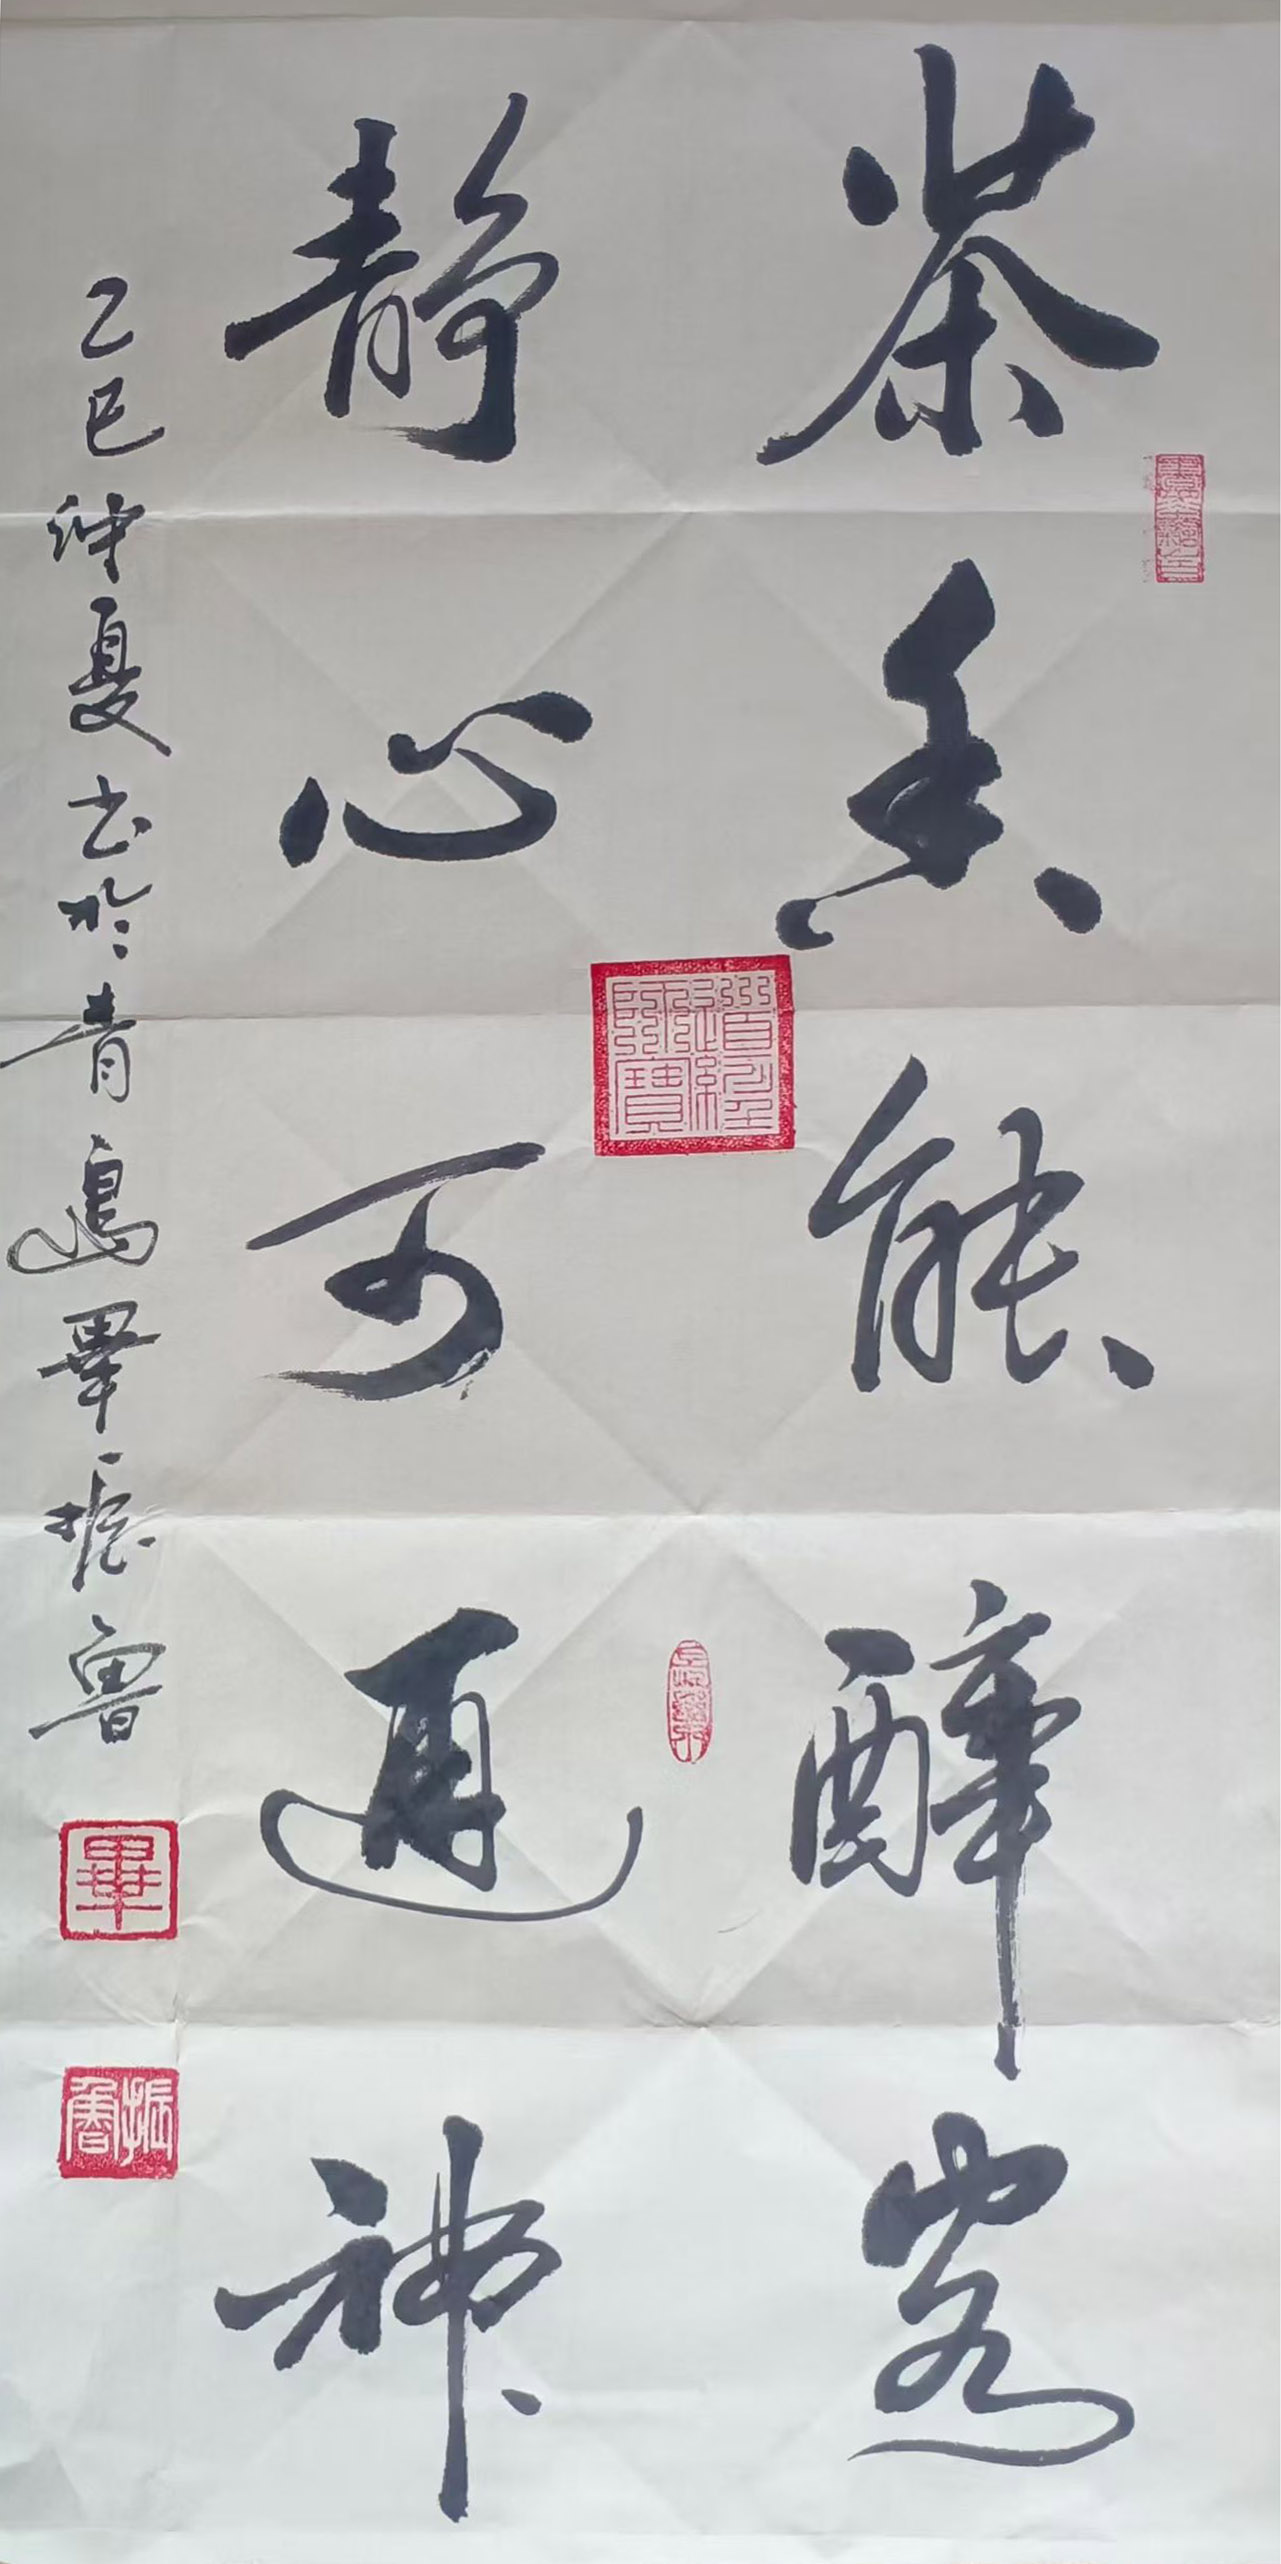 茶香能醉客
静心可通神
乙巳仲夏书於青島畢振魯
畢
振魯